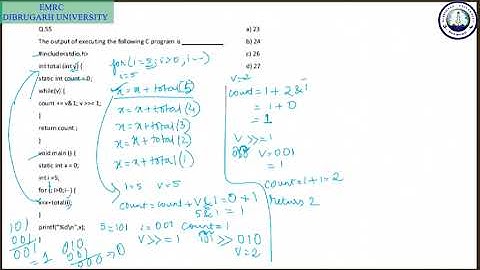 EMRC
DIBRUGARH UNIVERSITY
Q.55
The output of executing the following C program is
#include<stdio.h>
int total (int v) {
static int count = 0;
while(v) {
count += v& 1; v >>= 1;
}
return count ;
}
void main () {
static int x = 0;
int i =5;
for (; i>0;i--) {
x=x+total(i);
}
printf("%d\n",x);
a) 23
b) 24
c) 26
d) 27
for(i=5; i>0, i--)
i=5
x = x + total(5)
x = x + total(4)
x = x + total(3)
x = x + total(2)
x = x + total(1)
i=5 v=5
count = count + v&1 = 0 + 1
5&1 = 1
5=101 i=001 count=1
v>>=1 101 >> 010
v=2
101
001
001 = 1
010
001
000 => 0
v=2
count = 1 + 2&1
= 1+0
= 1
v>>=1
v=001
=1
count=1+1=2
return 2